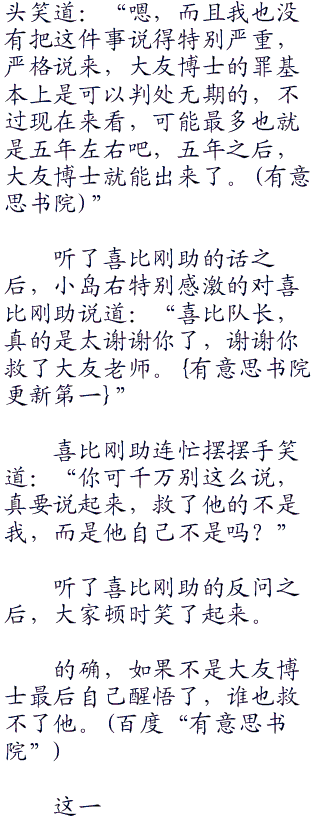 头笑道：“嗯，而且我也没
有把这件事说得特别严重，
严格说来，大友博士的罪基
本上是可以判处无期的，不
过现在来看，可能最多也就
是五年左右吧，五年之后，
大友博士就能出来了。(有意
思书院)”
听了喜比刚助的话之
后，小岛右特别感激的对喜
比刚助说道：“喜比队长，
真的是太谢谢你了，谢谢你
救了大友老师。{有意思书院
更新第一}”
喜比刚助连忙摆摆手笑
道：“你可千万别这么说，
真要说起来，救了他的不是
我，而是他自己不是吗？”
听了喜比刚助的反问之
后，大家顿时笑了起来。
的确，如果不是大友博
士最后自己醒悟了，谁也救
不了他。(百度“有意思书
院”)
这一